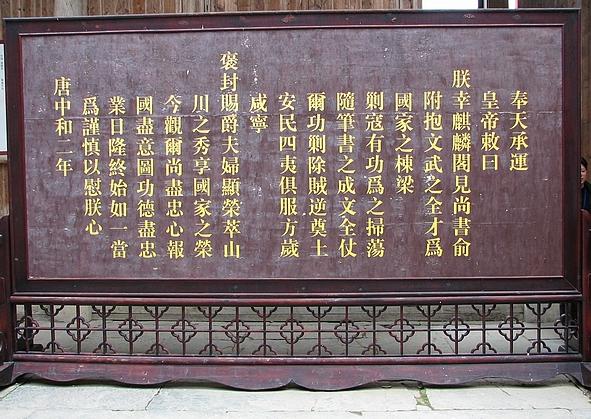 奉天承運
皇帝敕曰
朕幸麒麟閣見尚書俞
附抱文武之全才爲
國家之棟梁
剿寇有功爲之掃蕩
隨筆書之成文全仗
爾功剿除賊逆奠土
安民四夷俱服方歲
咸寧
褒封賜爵夫婦顯榮萃山
川之秀享國家之榮
今觀爾尚盡忠心報
國盡意圖功德盡忠
業日隆終始如一當
爲謹慎以慰朕心
唐中和二年